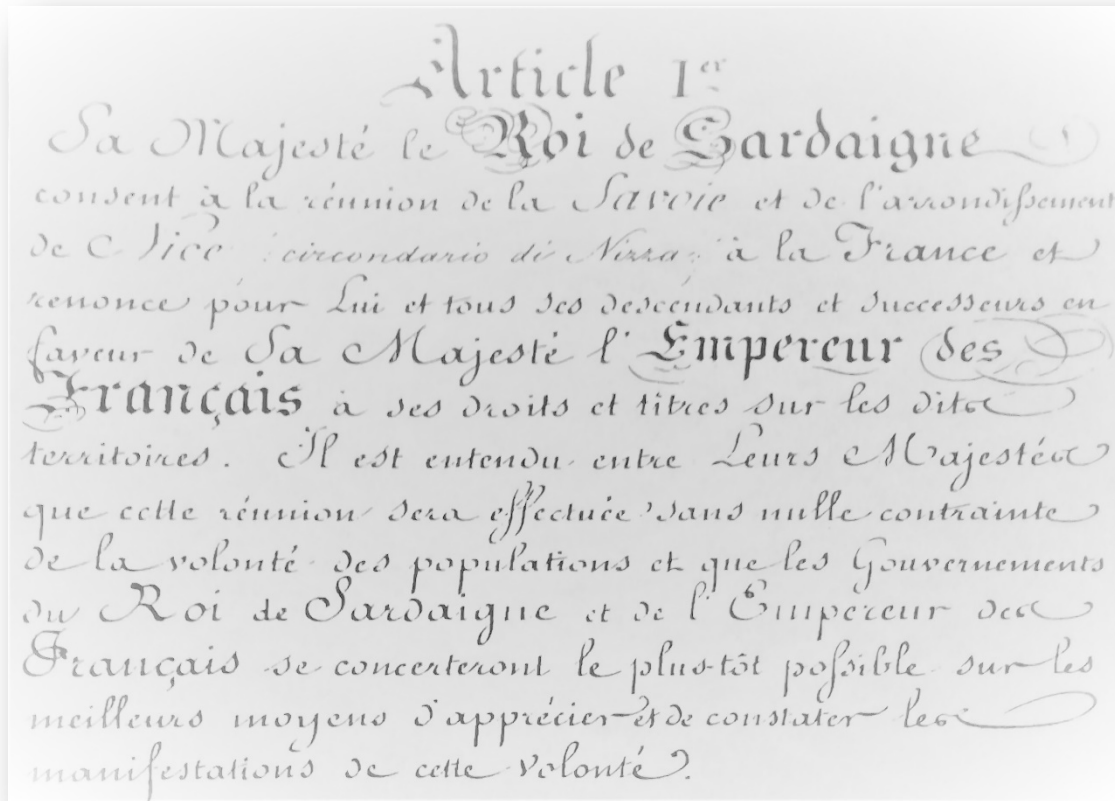 Article 1er
Sa Majesté le Roi de Sardaigne
consent à la réunion de la Savoie et de l'arrondissement
de Nice (circondario di Nizza) à la France et
renonce pour Lui et tous ses descendants et successeurs en
faveur de Sa Majesté l'Empereur des
Français à ses droits et titres sur les dits
territoires. Il est entendu entre Leurs Majestés
que cette réunion sera effectuée sans nulle contrainte
de la volonté des populations et que les Gouvernements
du Roi de Sardaigne et de l'Empereur des
Français se concerteront le plus-tôt possible sur les
meilleurs moyens d'apprécier et de constater les
manifestations de cette volonté.